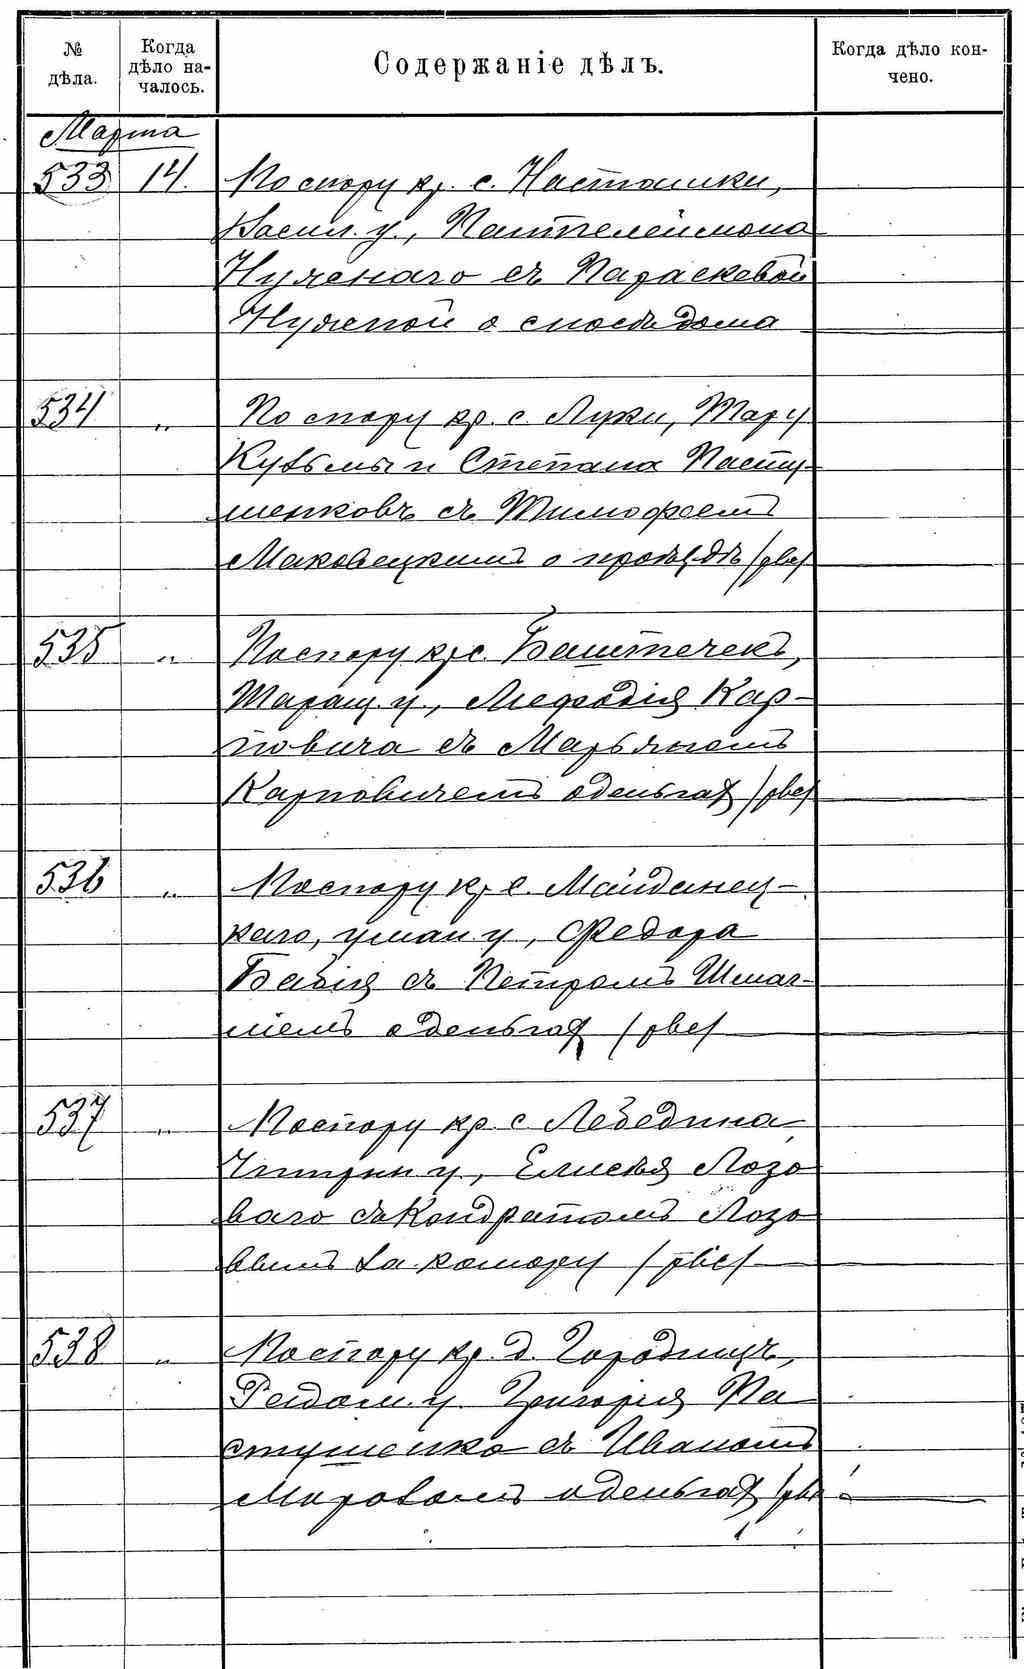 №
дѣла.
Когда
дѣло на-
чалось.
Содержаніе дѣлъ.
Когда дѣло кон-
чено.
Марта
533 14. По спору кр. с. Насташки,
Васил. у., Пантелеймона
Нуженаго съ Параскевой
Нуженой о сносѣ дома
534 „ По спору кр. с. Луки, Тар. у
Кузьмы и Степана Пасту-
шенковъ съ Тимофеемъ
Маковецкимъ о
535 „ По спору кр. с. Баштечекъ,
Таращ. у., Мефодія Кар-
повича съ Марьяномъ
Карповичемъ о деньгах
536 „ По спору кр. с. Майданец-
каго, уман. у, Федора
Бабія съ Петромъ Шмаг-
ліемъ о деньгах
537 „ По спору кр. с Лебедина
Чигрин. у, Елисѣя Лозо
ваго съ Кондратомъ Лозо
вымъ за комору
538 „ По спору кр. д. Городищъ,
Радом. у. Григорія Па
стушенко съ Иваномъ
Маровомъ о деньгах